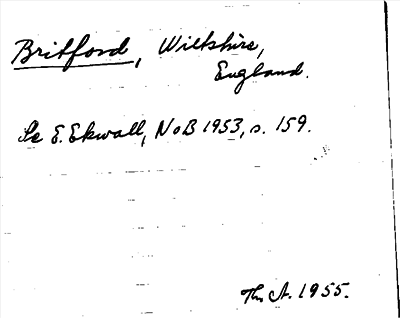 Britford, Wiltshire,
England.
Se E. Ekwall, NoB 1953, s. 159.
Th. A. 1955.